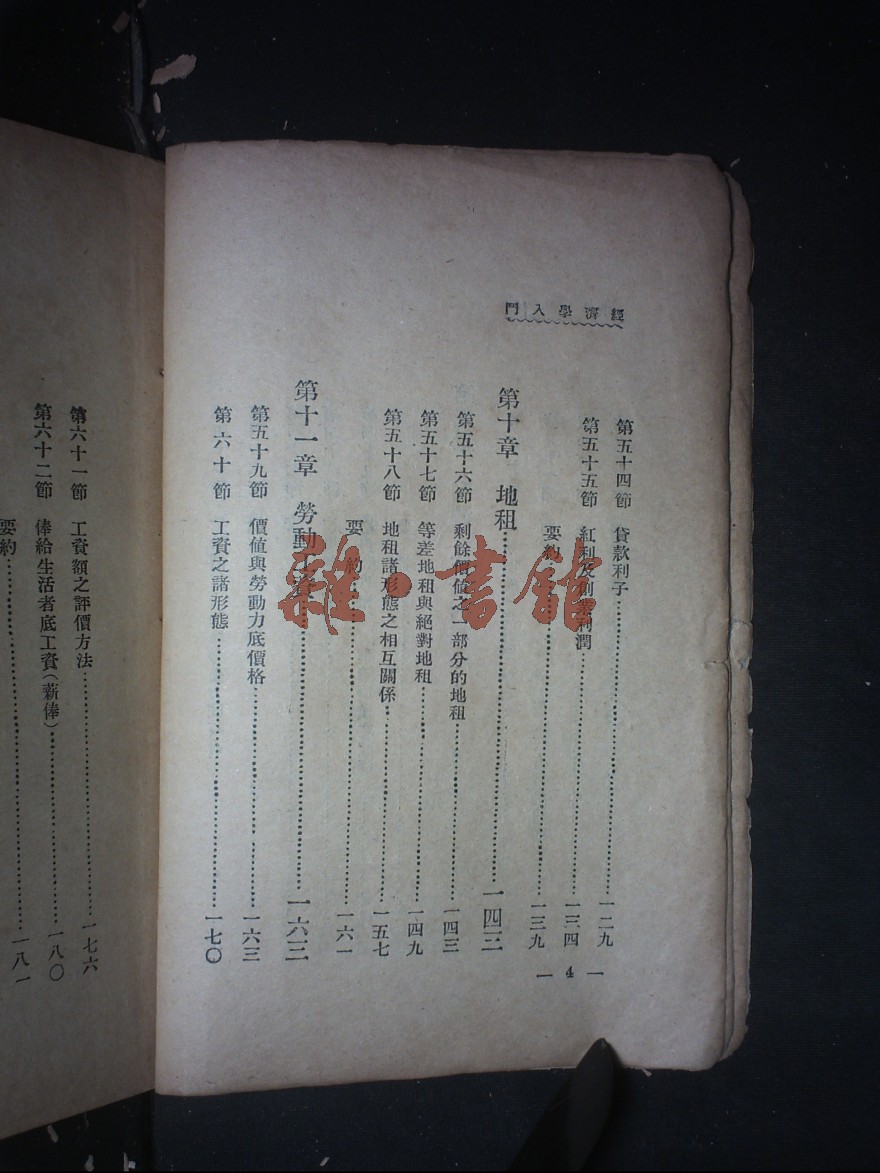 經濟學入門
第五十四節 貸款利子⋯⋯一二九
第五十五節 紅利及創業利潤⋯⋯一三四
要約⋯⋯一三九
第十章 地租⋯⋯一四三
第五十六節 剩餘價值之一部分的地租⋯⋯一四三
第五十七節 等差地租與絕對地租⋯⋯一四九
第五十八節 地租諸形態之相互關係⋯⋯一五七
要約⋯⋯一六一
第十一章 勞動工資⋯⋯一六三
第五十九節 價值與勞動力底價格⋯⋯一六三
第六十節 工資之諸形態⋯⋯一七〇
— 4 —
第六十一節 工資額之評價方法⋯⋯一七六
第六十二節 俸給生活者底工資(薪俸)⋯⋯一八〇
要約⋯⋯一八一
雜·書館